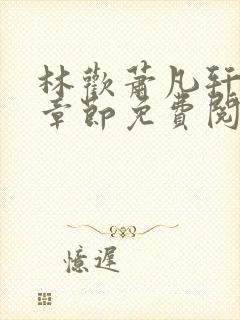 林歡蕭凡軒
章節免費閱
憶遲